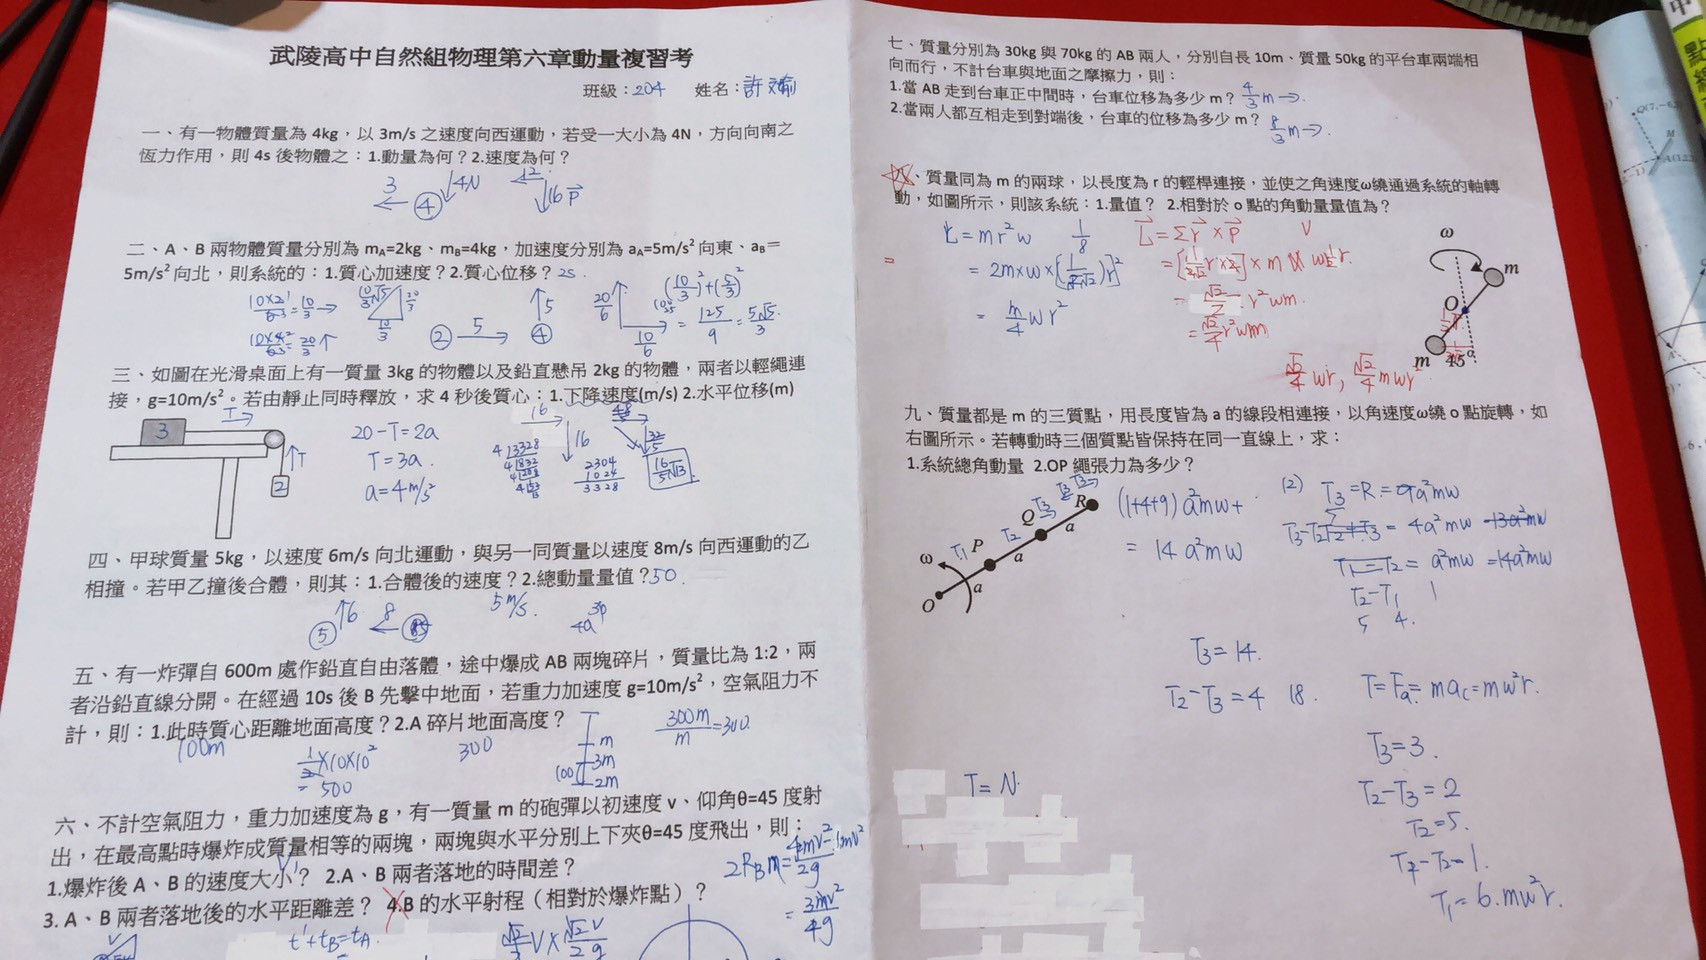 武陵高中自然組物理第六章動量複習考
班級：204 姓名：許文瑜
一、有一物體質量為 4kg，以 3m/s 之速度向西運動，若受一大小為 4N，方向向南之
恆力作用，則 4s 後物體之：1.動量為何？2.速度為何？
3 ④ 4N 12 16 P
二、A、B 兩物體質量分別為 mA=2kg、mB=4kg，加速度分別為 aA=5m/s² 向東、aB=
5m/s² 向北，則系統的：1.質心加速度？2.質心位移？2s
② 5 ④ 5
20/6
10/6
(10/3)²+(5/3)²
= 125/9 = 5√5/3
三、如圖在光滑桌面上有一質量 3kg 的物體以及鉛直懸吊 2kg 的物體，兩者以輕繩連
接，g=10m/s²。若由靜止同時釋放，求 4 秒後質心：1.下降速度(m/s) 2.水平位移(m)
3
T
T
2
20-T=2a
T=3a.
a=4m/s²
16
16
48
32/5
2304
1024
3328
16/5√13
四、甲球質量 5kg，以速度 6m/s 向北運動，與另一同質量以速度 8m/s 向西運動的乙
相撞。若甲乙撞後合體，則其：1.合體後的速度？2.總動量量值？50.
⑤ 6 8
5m/s.
五、有一炸彈自 600m 處作鉛直自由落體，途中爆成 AB 兩塊碎片，質量比為 1:2，兩
者沿鉛直線分開。在經過 10s 後 B 先擊中地面，若重力加速度 g=10m/s²，空氣阻力不
計，則：1.此時質心距離地面高度？2.A 碎片地面高度？
100m
300
1/2×10×10²
=500
m
3m
2m
100
300m/m=300
六、不計空氣阻力，重力加速度為 g，有一質量 m 的砲彈以初速度 v、仰角θ=45 度射
出，在最高點時爆炸成質量相等的兩塊，兩塊與水平分別上下夾θ=45 度飛出，則：
1.爆炸後 A、B 的速度大小？ 2.A、B 兩者落地的時間差？
3. A、B 兩者落地後的水平距離差？ 4.B 的水平射程（相對於爆炸點）？
= 3mv²/4g
t'+tB=tA.
七、質量分別為 30kg 與 70kg 的 AB 兩人，分別自長 10m、質量 50kg 的平台車兩端相
向而行，不計台車與地面之摩擦力，則：
1.當 AB 走到台車正中間時，台車位移為多少 m？ 4/3 m→.
2.當兩人都互相走到對端後，台車的位移為多少 m？ 8/3 m→.
、質量同為 m 的兩球，以長度為 r 的輕桿連接，並使之角速度ω繞通過系統的軸轉
動，如圖所示，則該系統：1.量值？ 2.相對於 o 點的角動量量值為？
L=mr²w
1/8
= m/4 wr²
L=Σr×p
V
= √2/4 r²wm
√2/4 wr, √2/4 mwr²
ω
m
O
m
45°
九、質量都是 m 的三質點，用長度皆為 a 的線段相連接，以角速度ω繞 o 點旋轉，如
右圖所示。若轉動時三個質點皆保持在同一直線上，求：
1.系統總角動量 2.OP 繩張力為多少？
ω
O
P
Q
R
a
a
a
T1
T2
T3
(1+4+9)a²mw+
= 14 a²mw
(2) T3=R=9a²mw
= 4a²mw -13a²mw
T1-T2= a²mw =14a²mw
T2-T1
5 4.
T3=14.
T2-T3=4 18.
T=Fa=mac=mw²r.
T=N
T3=3.
T2-T3=2
T2=5.
T1-T2=1.
T1=6.mw²r.